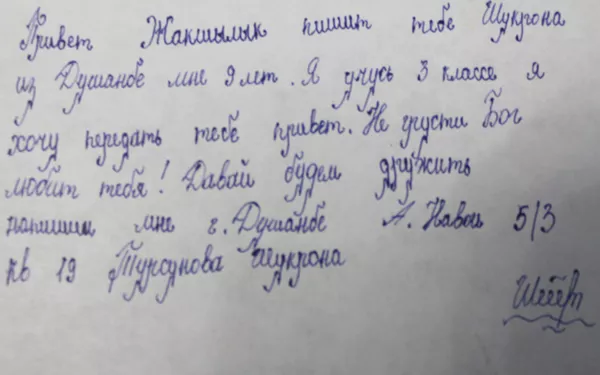 Привет Жакшылык пишит тебе Шукрона
из Душанбе мне 9 лет. Я учусь 3 классе я
хочу передать тебе привет. Не грусти Бог
любит тебя! Давай будем дружить
напишим мне г. Душанбе А. Навои 5/3
кв 19 Турсунова Шукрона